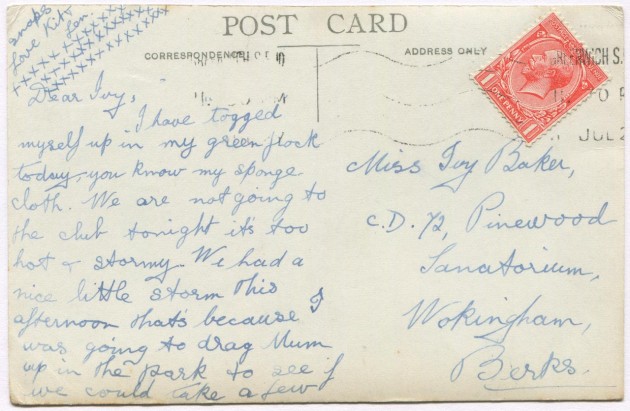 snaps
love Kit &
Len
xxxxxxxxxxxx
xxxxxxxxxxxx
POST CARD
CORRESPONDENCE
ADDRESS ONLY
Dear Ivy,
I have togged
myself up in my green frock
today, you know my sponge
cloth. We are not going to
the club tonight it's too
hot & stormy. We had a
nice little storm this
afternoon that's because I
was going to drag Mum
up in the park to see if
we could take a few
Miss Ivy Baker,
C.D. 72, Pinewood
Sanatorium,
Wokingham,
Berks.
ONE PENNY
GREENWICH S.
JUL 2